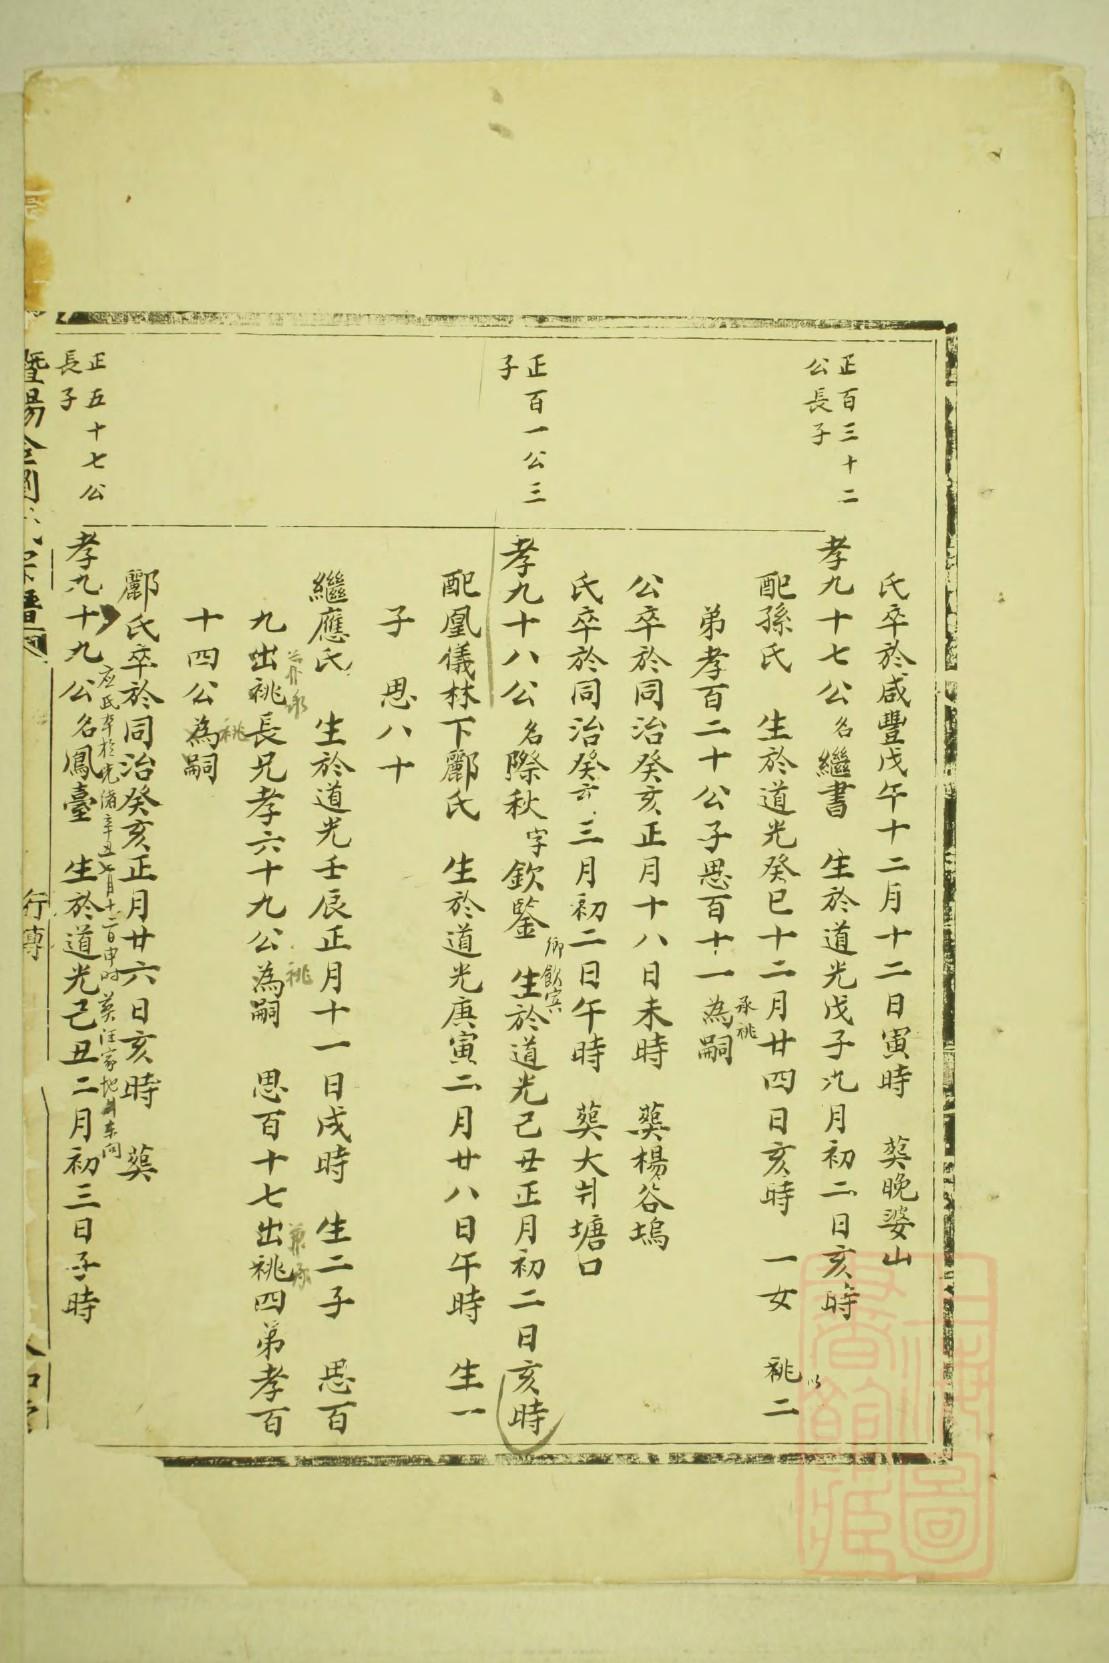 氏卒於咸豐戊午十二月十二日寅時 葬晚婆山
正百三十二
公長子
孝九十七公名繼書 生於道光戊子九月初二日亥時
配孫氏 生於道光癸巳十二月廿四日亥時 一女 祧二
以
承祧
弟孝百二十公子思百十一為嗣
公卒於同治癸亥正月十八日未時 葬楊谷塢
氏卒於同治癸亥三月初二日午時 葬大井塘口
正百一公三
子
孝九十八公名際秋字欽鑒 生於道光己丑正月初二日亥時
鄉飲賓
配凰儀林下酈氏 生於道光庚寅二月廿八日午時 生一
子 思八十
繼應氏 生於道光壬辰正月十一日戌時 生二子 思百
兼承
祧
兼承
九出祧長兄孝六十九公為嗣 思百十七出祧四弟孝百
祧
十四公為嗣
酈氏卒於同治癸亥正月廿六日亥時 葬
應氏卒於光緒辛丑七月十二日申時葬汪家地
東向
正五十七公
長子
孝九十九公名鳳臺 生於道光己丑二月初三日子時
暨陽
行傳